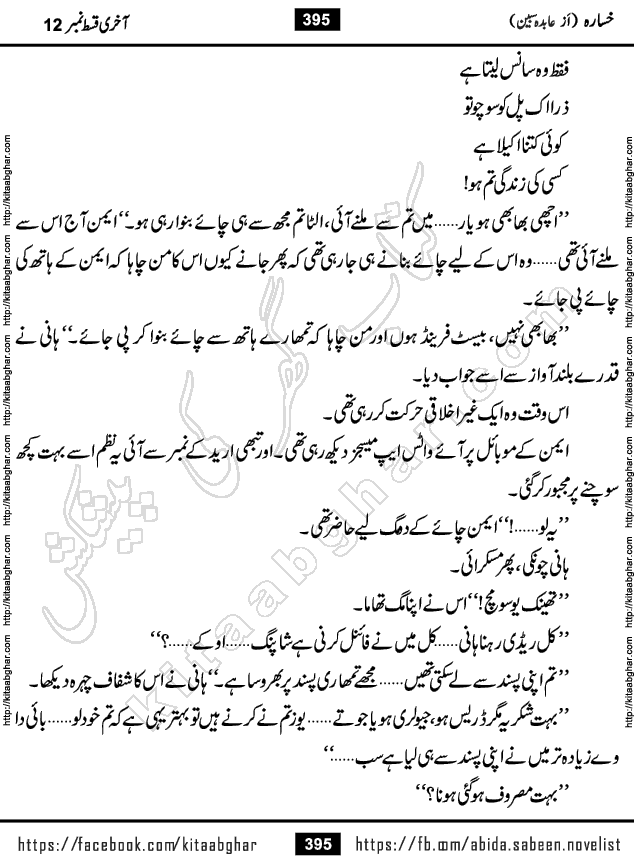 خسارہ (از عابدہ سبین)
395
آخری قسط نمبر 12
فقط وہ سانس لیتا ہے
ذرا اک پل کو سوچو تو
کوئی کتنا اکیلا ہے
کسی کی زندگی تم ہو!
’’اچھی بھابھی ہو یار...... میں تم سے ملنے آئی، الٹا تم مجھ سے ہی چائے بنوا رہی ہو۔‘‘ ایمن آج اس سے
ملنے آئی تھی ...... وہ اس کے لیے چائے بنانے ہی جا رہی تھی کہ پھر جانے کیوں اس کا من چاہا کہ ایمن کے ہاتھ کی
چائے پی جائے۔
’’بھابھی نہیں، بیسٹ فرینڈ ہوں اور من چاہا کہ تمہارے ہاتھ سے چائے بنوا کر پی جائے۔‘‘ ہانی نے
قدرے بلند آواز سے اسے جواب دیا۔
اس وقت وہ ایک غیر اخلاقی حرکت کر رہی تھی۔
ایمن کے موبائل پر آئے واٹس ایپ میسجز دیکھ رہی تھی۔ اور تبھی ارید کے نمبر سے آئی یہ نظم اسے بہت کچھ
سوچنے پر مجبور کر گئی۔
’’یہ لو......!‘‘ ایمن چائے کے دو مگ لیے حاضر تھی۔
ہانی چونکی، پھر مسکرائی۔
’’تھینک یو سو مچ!‘‘ اس نے اپنا مگ تھاما۔
’’کل ریڈی رہنا ہانی...... کل میں نے فائنل کرنی ہے شاپنگ...... اوکے......؟‘‘
’’تم اپنی پسند سے لے سکتی تھیں...... مجھے تمہاری پسند پر بھروسا ہے۔‘‘ ہانی نے اس کا شفاف چہرہ دیکھا۔
’’بہت شکریہ مگر ڈریس ہو، جیولری ہو یا جوتے...... یوز تم نے کرنے ہیں تو بہتر یہی ہے کہ تم خود لو...... بائی دا
وے زیادہ تر میں نے اپنی پسند سے ہی لیا ہے سب......‘‘
’’بہت مصروف ہو گئی ہو نا؟‘‘
https://facebook.com/kitaabghar
395
https://fb.com/abida.sabeen.novelist
http://kitaabghar.com http://kitaabghar.com http://kitaabghar.com http://kitaabghar.com http://kitaabghar.com http://kitaabghar.com
http://kitaabghar.com http://kitaabghar.com http://kitaabghar.com http://kitaabghar.com http://kitaabghar.com http://kitaabghar.com
کتاب گھر کی پیشکش
kitaabghar.com